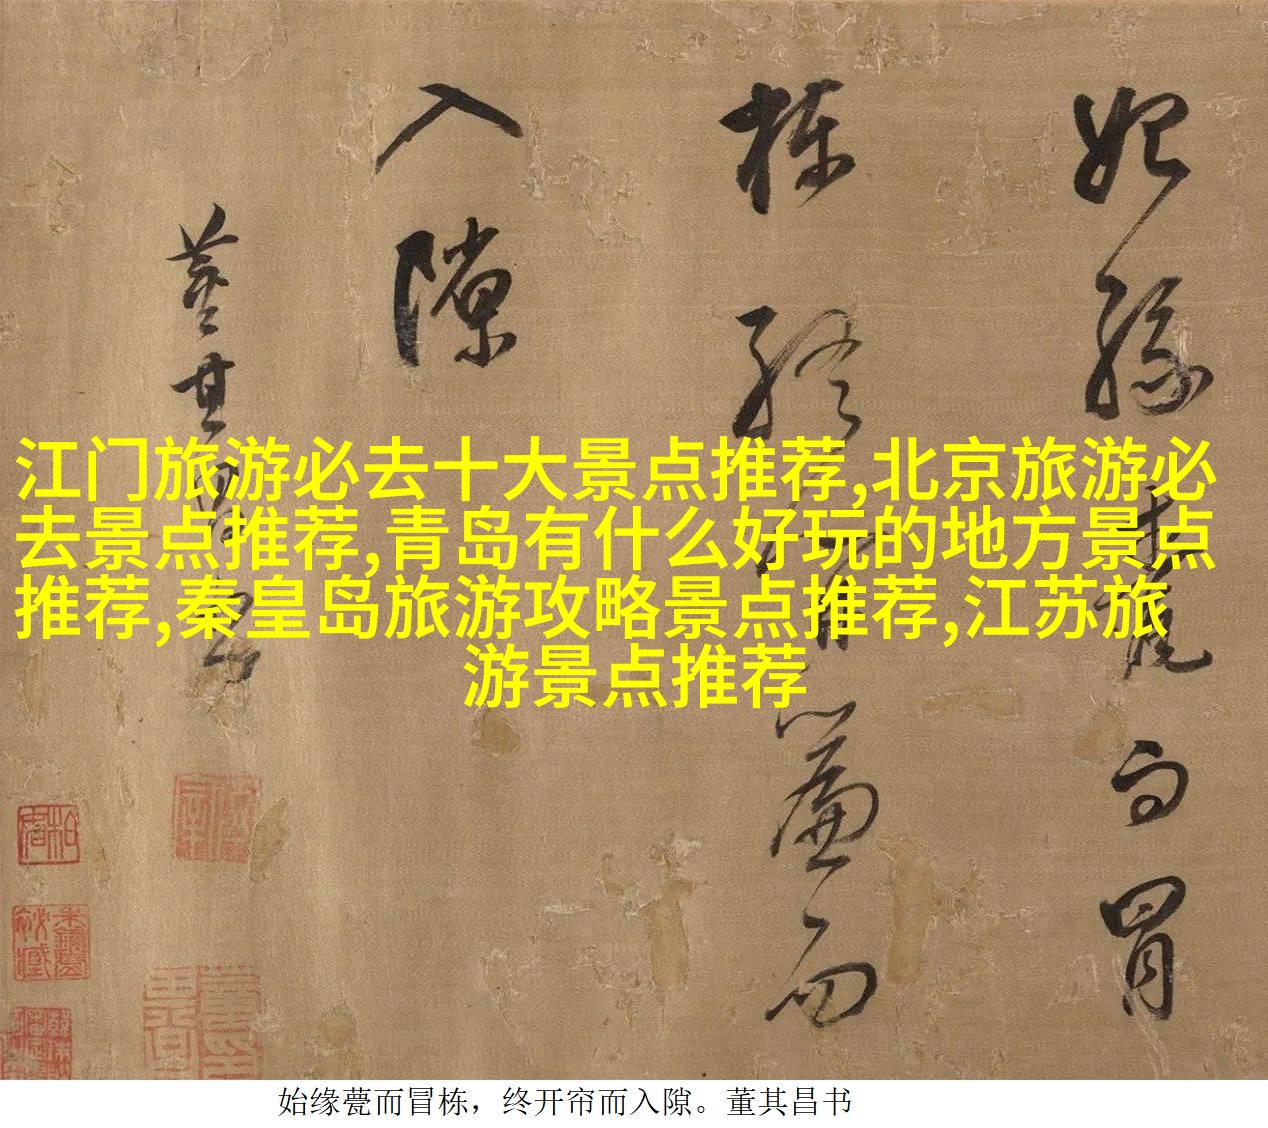 始緣甍而冒
棟終開簾而
入隙
董其昌書
江门旅游必去十大景点推荐,北京旅游必
去景点推荐,青岛有什么好玩的地方景点
推荐,秦皇岛旅游攻略景点推荐,江苏旅
游景点推荐
始缘甍而冒栋，终开帘而入隙。董其昌书